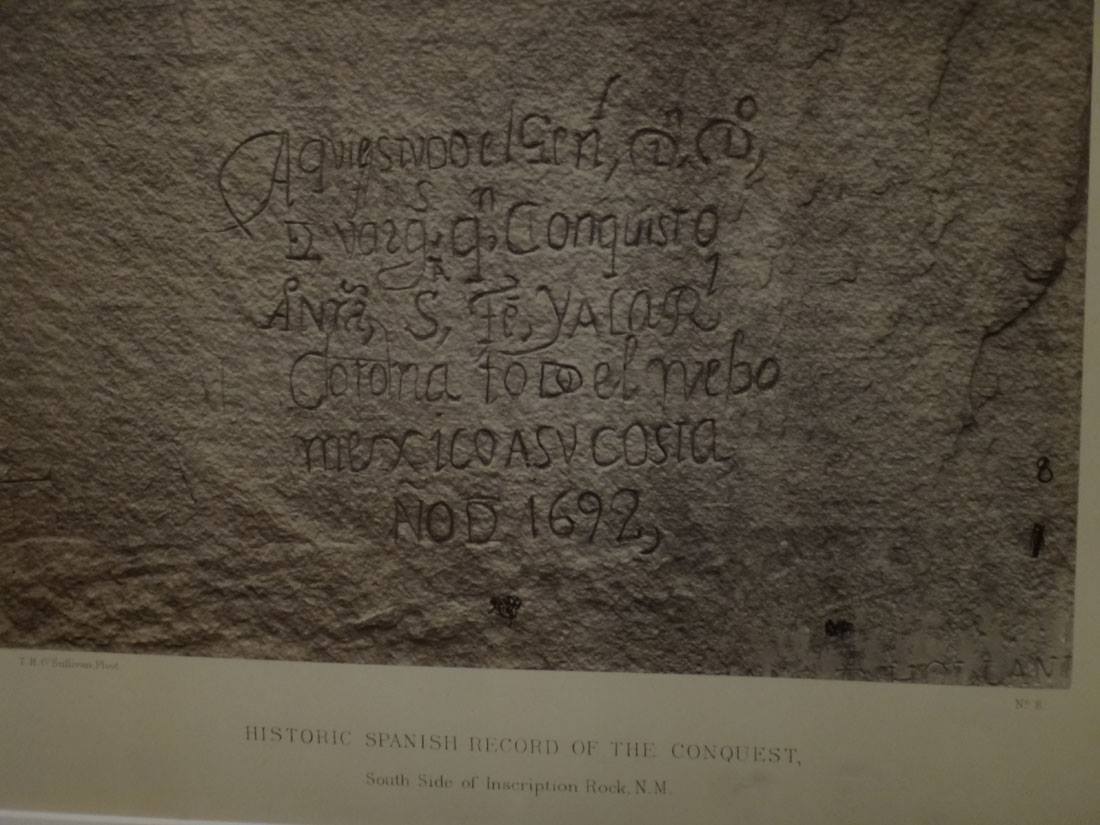 Aqui estvDo el Genˡ, Dⁿ, Dº,
DE varg.ˢ, qⁿ, Conquisto
Å Nrã, S, Fé, YALaRˡ
Corona toDo el nvebo
mexico ASV costa,
ÅNOD 1692,
8
T. H. O'Sullivan, Phot.
Nº 8.
HISTORIC SPANISH RECORD OF THE CONQUEST,
South Side of Inscription Rock, N.M.